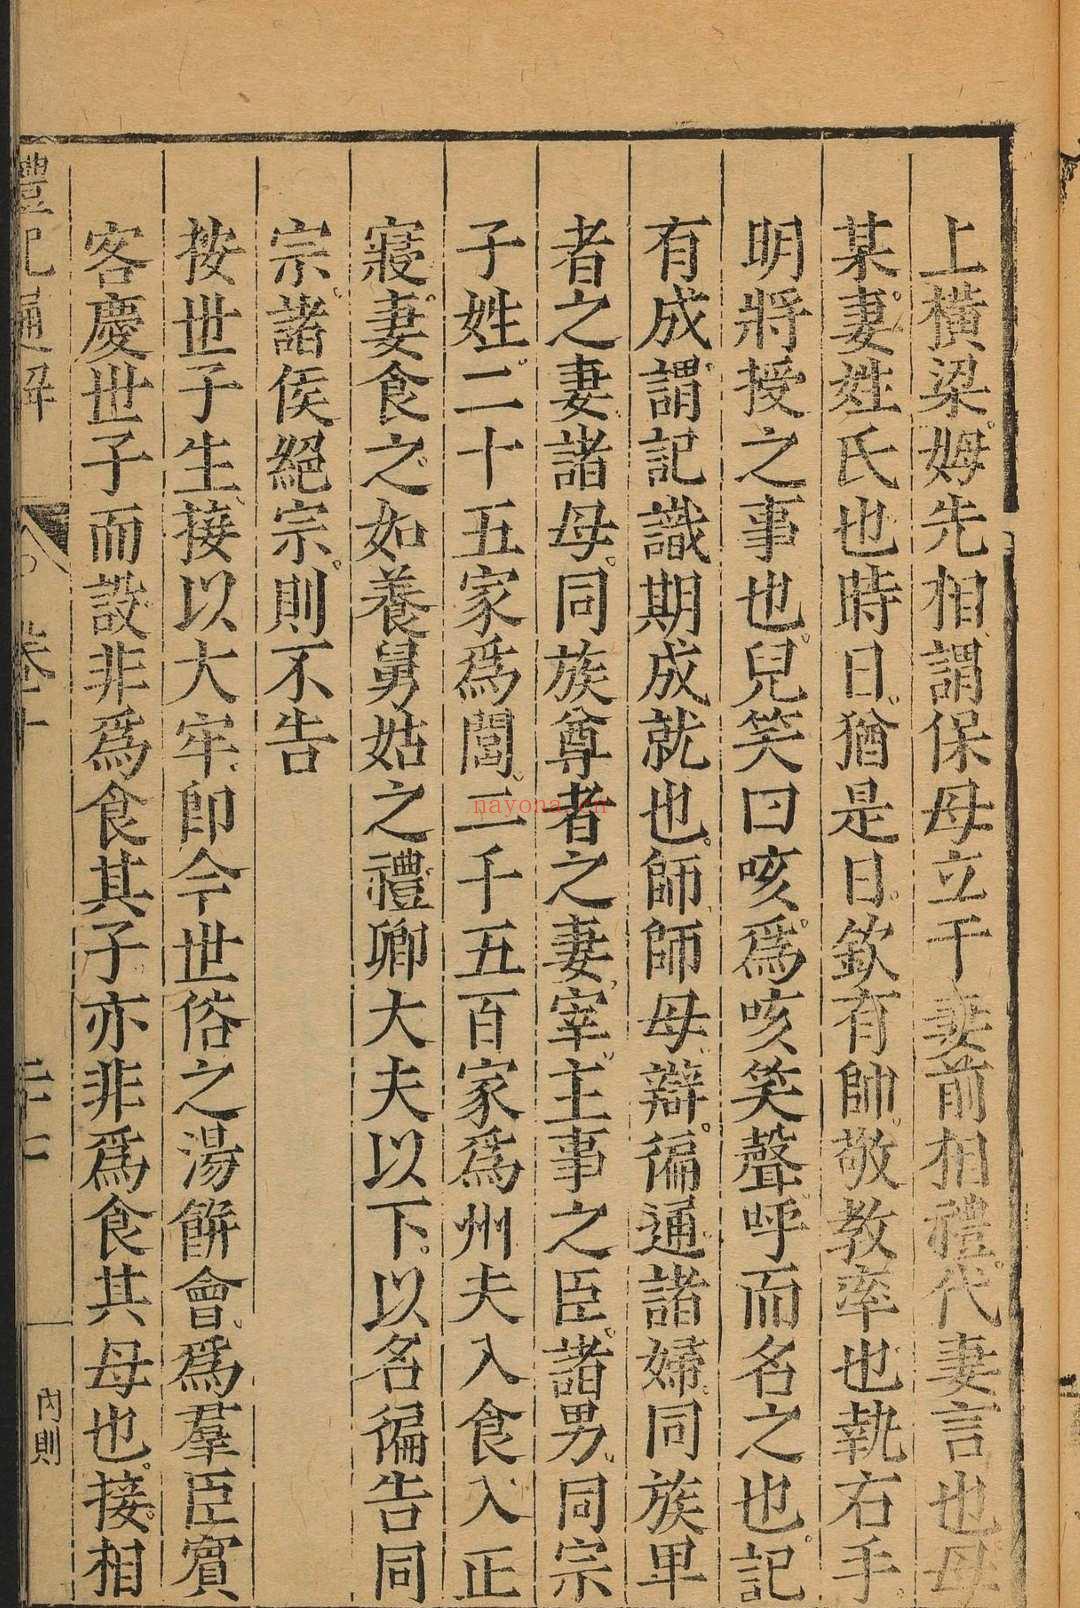 上橫梁姆先相謂保母立于妻前相禮代妻言也母
某妻姓氏也時日猶是日欽有帥敬教率也執右手
明將授之事也兒笑曰咳爲咳笑聲呼而名之也記
有成謂記識期成就也師師母辯徧通諸婦同族卑
者之妻諸母同族尊者之妻宰主事之臣諸男同宗
子姓二十五家爲閭二千五百家爲州夫入食入正
寢妻食之如養舅姑之禮卿大夫以下以名徧告同
宗諸侯絕宗則不告
按世子生接以大牢卽今世俗之湯餅會爲羣臣賓
客慶世子而設非爲食其子亦非爲食其母也接相
禮記通解
卷十
二十七
內則
nayona.cn